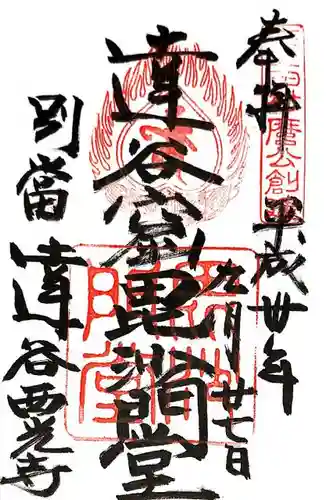 奉拝 平成卅年
九月廿七日
達谷窟毘沙門堂
別當 達谷西光寺
麿公創
毘沙
門堂